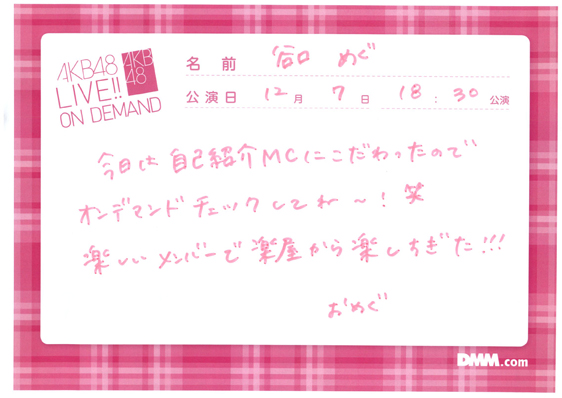 AKB48
LIVE!!
ON DEMAND
AKB
48
名前 谷口 めぐ
公演日 12月 7日 18:30公演
今日は自己紹介MCにこだわったので
オンデマンドチェックしてね〜！笑
楽しいメンバーで楽屋から楽しすぎた!!!
おめぐ
DMM.com